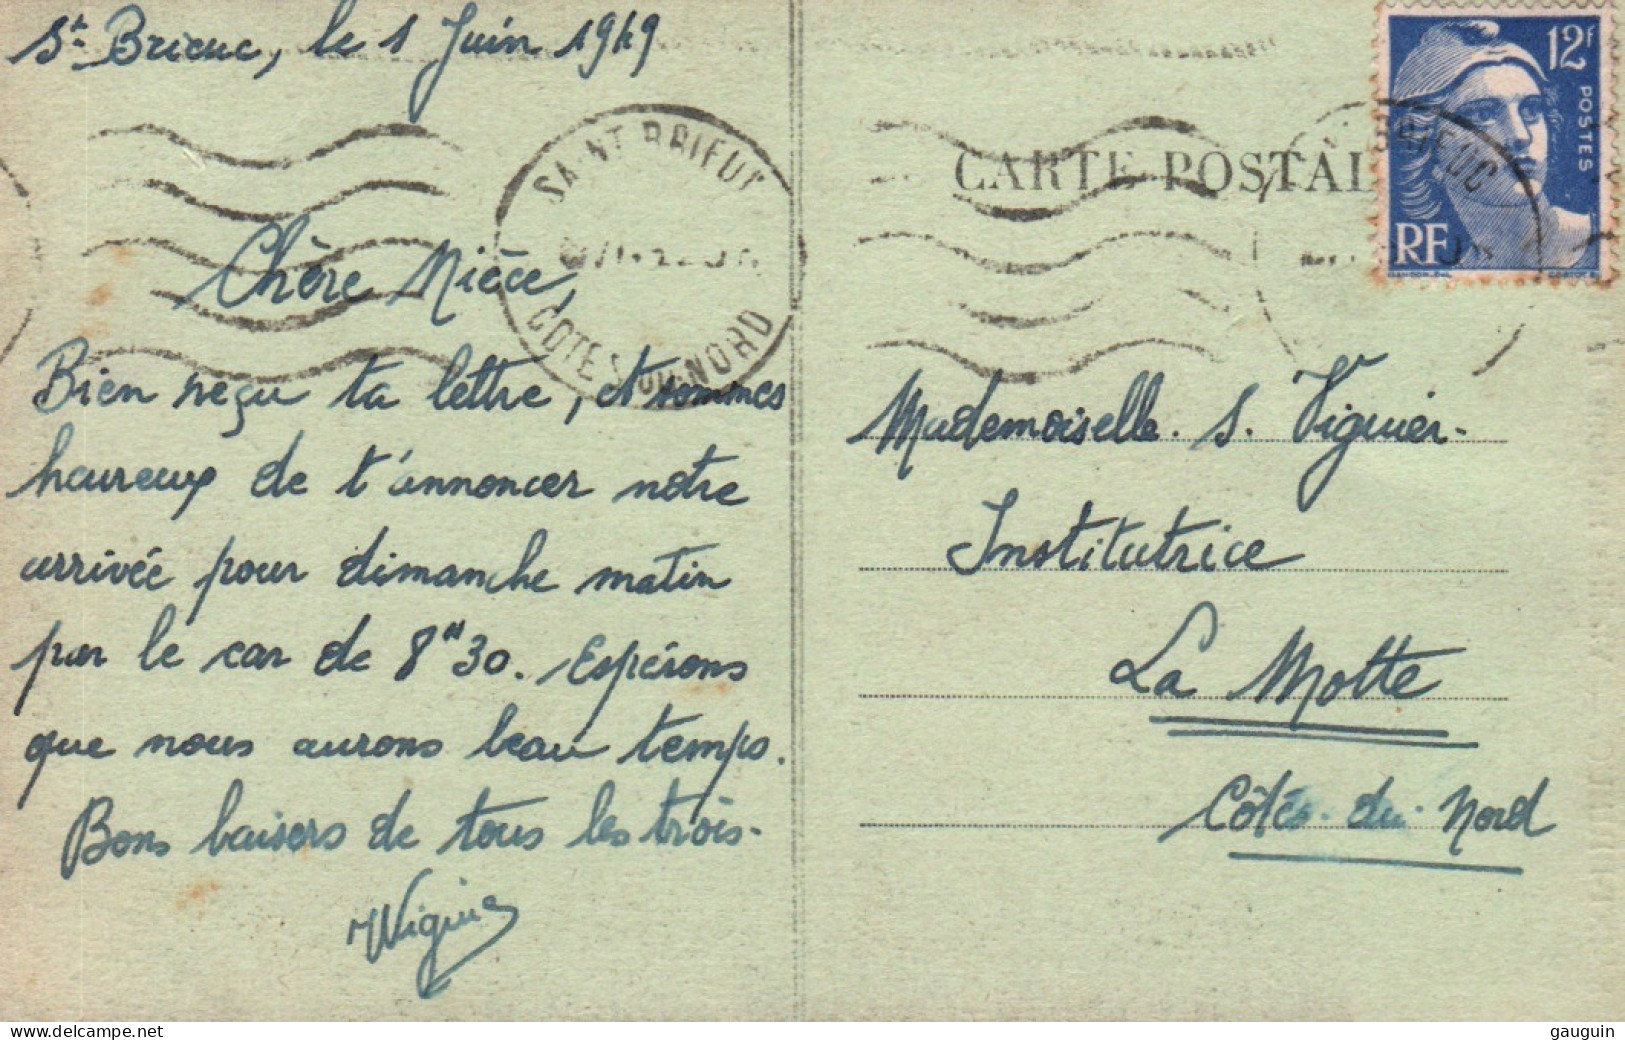 St-Brieuc, le 1 Juin 1949
Chère Nièce,
Bien reçu ta lettre, et sommes
heureux de t'annoncer notre
arrivée pour dimanche matin
par le car de 8H30. Espérons
que nous aurons beau temps.
Bons baisers de tous les trois.
Viguier
SAINT BRIEUC
COTES DU NORD
CARTE POSTAL
12f
POSTES
RF
BRIEUC
Mademoiselle. S. Viguier.
Institutrice
La Motte
Côtes-du-Nord
delcampe.net
gauguin